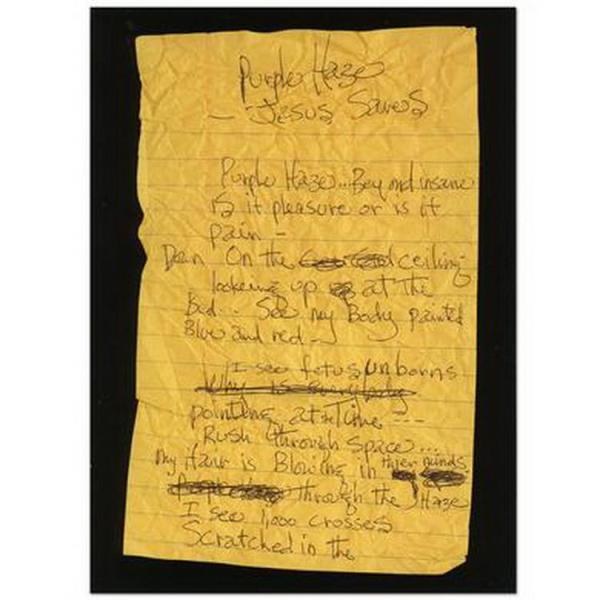 Purple Haze
- Jesus Saves
Purple Haze... Beyond insane
is it pleasure or is it
pain -
Down On the ceiling
looking up at the
bed... See my Body painted
Blue and red -
I see fetus unborns
Why is everybody
pointing at the Time ---
Rush through space...
my Hair is Blowing in thier minds
through the Haze
I see 1,000 crosses
Scratched in the